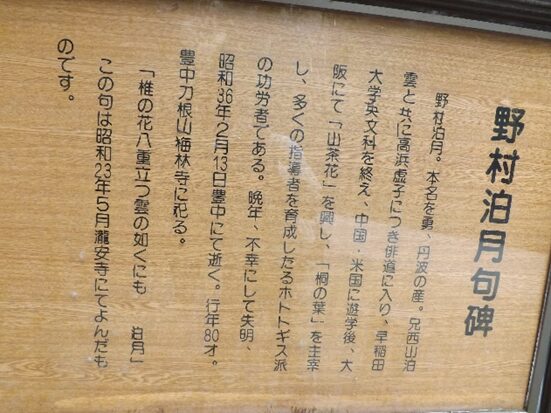 野村泊月句碑
野村泊月。本名を勇、丹波の産。兄西山泊
雲と共に高浜虚子につき俳道に入り、早稲田
大学英文科を終え、中国・米国に遊学後、大
阪にて「山茶花」を興し、「桐の葉」を主宰
し、多くの指導者を育成したるホトトギス派
の功労者である。晩年、不幸にして失明、
昭和36年2月13日豊中にて逝く。行年80才。
豊中刀根山梅林寺に祀る。
「椎の花八重立つ雲の如くにも 泊月」
この句は昭和23年5月瀧安寺にてよんだも
のです。